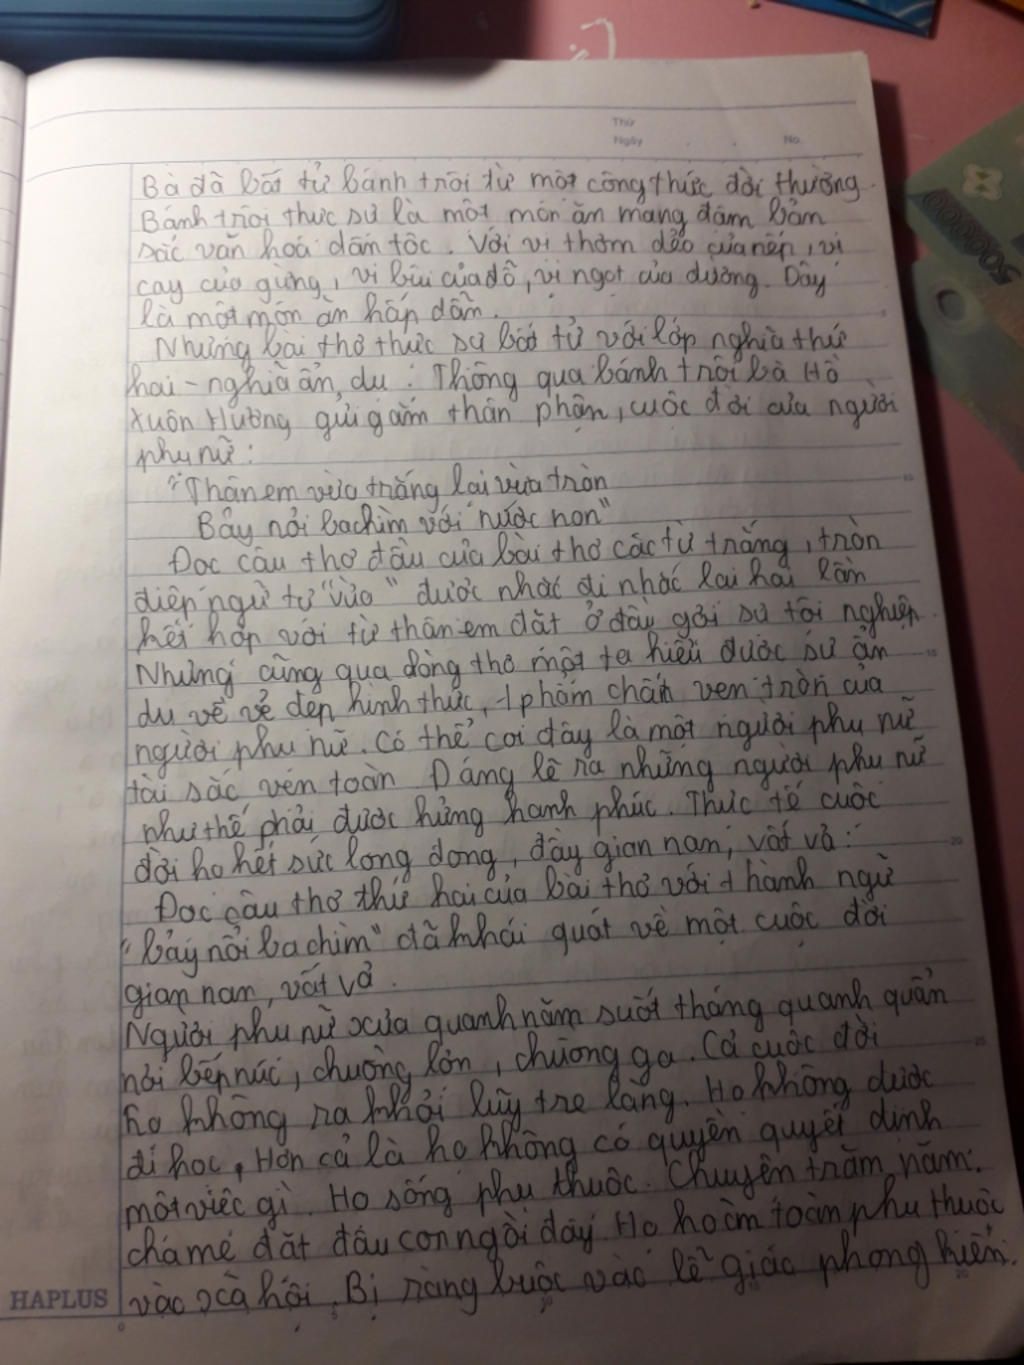 Thứ
Ngày . . No.
Bà đã bất tử bánh trôi từ một công thức đời thường.
Bánh trôi thực sự là một món ăn mang đậm bản
sắc văn hoá dân tộc. Với vị thơm dẻo của nếp, vị
cay của gừng, vị bùi của đỗ, vị ngọt của đường. Đây
là một món ăn hấp dẫn.
Nhưng bài thơ thực sự bất tử với lớp nghĩa thứ
hai - nghĩa ẩn dụ: Thông qua bánh trôi bà Hồ
Xuân Hương gửi gắm thân phận, cuộc đời của người
phụ nữ:
"Thân em vừa trắng lại vừa tròn
Bảy nổi ba chìm với nước non"
Đọc câu thơ đầu của bài thơ các từ trắng, tròn
điệp ngữ từ "vừa" được nhắc đi nhắc lại hai lần
kết hợp với từ thân em đặt ở đầu gợi sự tội nghiệp.
Nhưng cũng qua dòng thơ một ta hiểu được sự ẩn
dụ về vẻ đẹp hình thức, phẩm chất vẹn tròn của
người phụ nữ. Có thể coi đây là một người phụ nữ
tài sắc vẹn toàn Đáng lẽ ra những người phụ nữ
như thế phải được hưởng hạnh phúc. Thực tế cuộc
đời họ hết sức long đong, đầy gian nan, vất vả.
Đọc câu thơ thứ hai của bài thơ với thành ngữ
"bảy nổi ba chìm" đã khái quát về một cuộc đời
gian nan, vất vả.
Người phụ nữ xưa quanh năm suốt tháng quanh quẩn
nơi bếp núc, chuồng lợn, chuồng gà. Cả cuộc đời
họ không ra khỏi lũy tre làng. Họ không được
đi học, Hơn cả là họ không có quyền quyết định
một việc gì. Họ sống phụ thuộc. Chuyện trăm năm
cha mẹ đặt đâu con ngồi đấy Họ hoàn toàn phụ thuộc
vào xã hội. Bị ràng buộc vào lễ giáo phong kiến.
HAPLUS